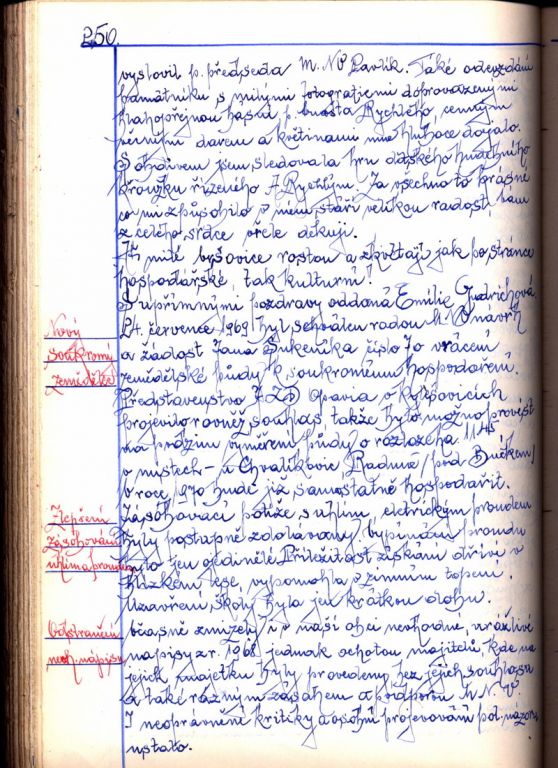 250.
vyslovil p. předseda M. NV Pavlík. Také odevzdání
památníku s milými fotografiemi doprovázenými
p. busta Rychlého, cenným
věcným darem a květinami mne hluboce dojalo.
S obdivem jsem sledovala hru dětského hudebního
kroužku řízeného J. Rychlým. Za všechno to krásné
co mi způsobilo v mém stáří velikou radost, Vám
z celého srdce vřele děkuji.
Ať milé byšovice rostou a zkvétají jak po stránce
hospodářské, tak kulturní!
S upřímnými pozdravy oddaná Emilie
Nový
soukromý
zemědělec
24. července 1969 byl schválen radou M.N.V návrh
a žádost Jana Sukeníka číslo 70 vrácení
zemědělské půdy k soukromému hospodaření.
Představenstvo JZD Opavia v Kylešovicích
projevilo rovněž souhlas, takže bylo možno provést
na podzim vyměření půdy o rozloze ha
v místech - u Chvalíkovic Raduně / pod
V roce 1970 bude již samostatně hospodařit.
Zlepšení
zásobování
uhlím a proudem
Zásobovací potíže s uhlím eletrickým proudem
byly postupně zdolávány. Vypínání proudu
bylo jen ojedinělé. Příležitost získání dříví v
blízkém lese, vypomohla v zimním topení.
Uzavření školy bylo jen krátkou dobu.
Odstranění
neoh. nápisů
Včasně zmizely i v naší obci nevhodné, urážlivé
nápisy z r. 1968 jednak ochotou majitelů, kde na
jejich majetku byly provedeny bez jejich souhlasu
a také rázným zásahem a podporou M.N.V.
I neoprávněné kritiky a osobní projevování pol. názorů
ustalo.